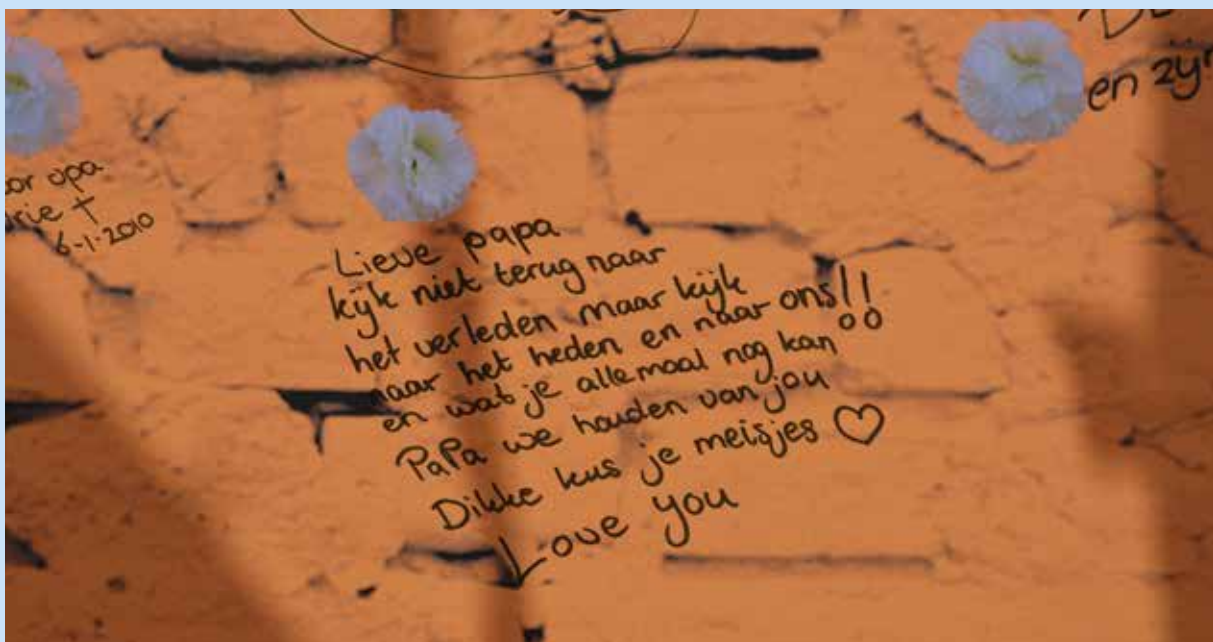 en zijn
or opa
rie †
6-1-2010
Lieve papa
kijk niet terug naar
het verleden maar kijk
naar het heden en naar ons!!
en wat je allemaal nog kan
PaPa we houden van jou
Dikke kus je meisjes ♡
Love you